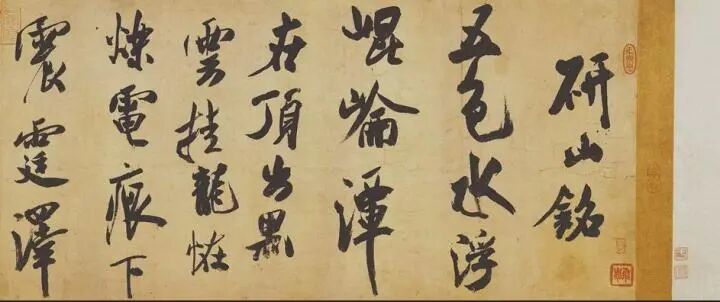 研山銘
五色水浮
崐崘潭
在頂出黑
雲挂龍怪
爍電痕下
震霆澤